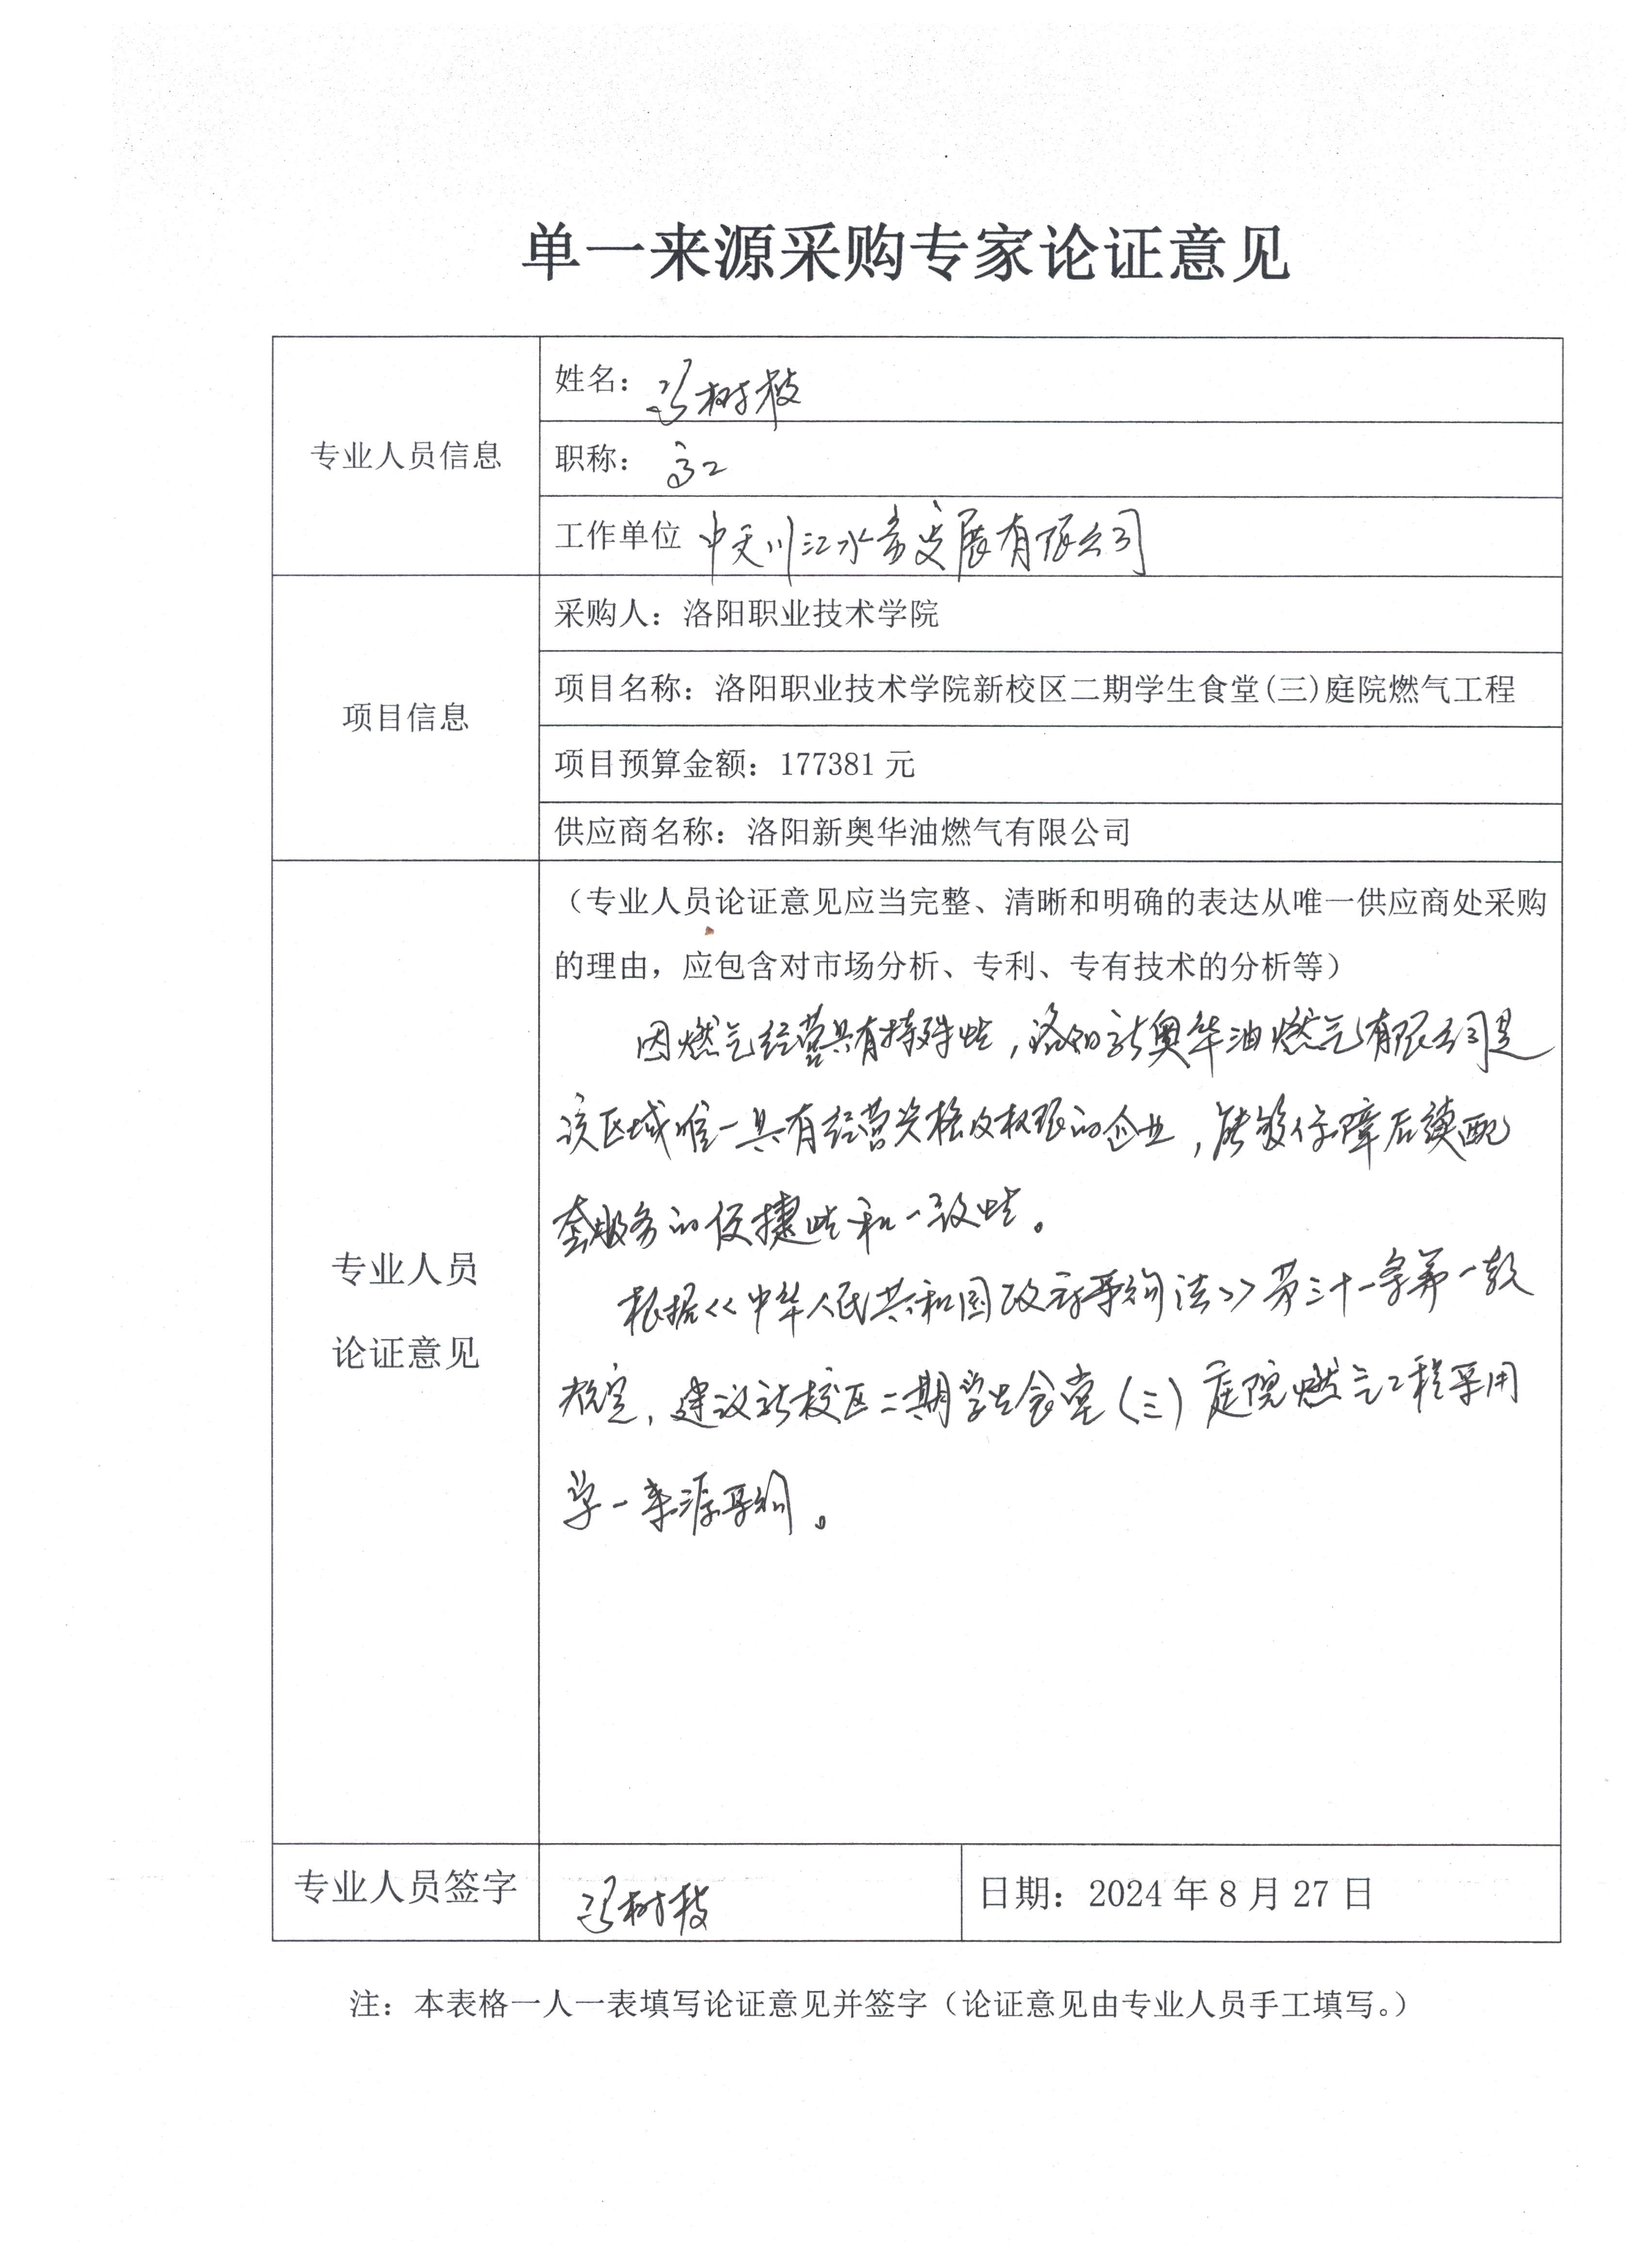 单一来源采购专家论证意见
专业人员信息
姓名：冯树枝
职称：高工
工作单位 中天川江水务发展有限公司
项目信息
采购人：洛阳职业技术学院
项目名称：洛阳职业技术学院新校区二期学生食堂(三)庭院燃气工程
项目预算金额：177381 元
供应商名称：洛阳新奥华油燃气有限公司
专业人员
论证意见
（专业人员论证意见应当完整、清晰和明确的表达从唯一供应商处采购
的理由，应包含对市场分析、专利、专有技术的分析等）
因燃气经营具有特殊性，洛阳新奥华油燃气有限公司是
该区域唯一具有经营资格及权限的企业，能够保障后续配
套服务的便捷性和一致性。
根据《中华人民共和国政府采购法》第三十一条第一款
规定，建议新校区二期学生食堂（三）庭院燃气工程采用
单一来源采购。
专业人员签字
冯树枝
日期：2024 年 8 月 27 日
注：本表格一人一表填写论证意见并签字（论证意见由专业人员手工填写。）